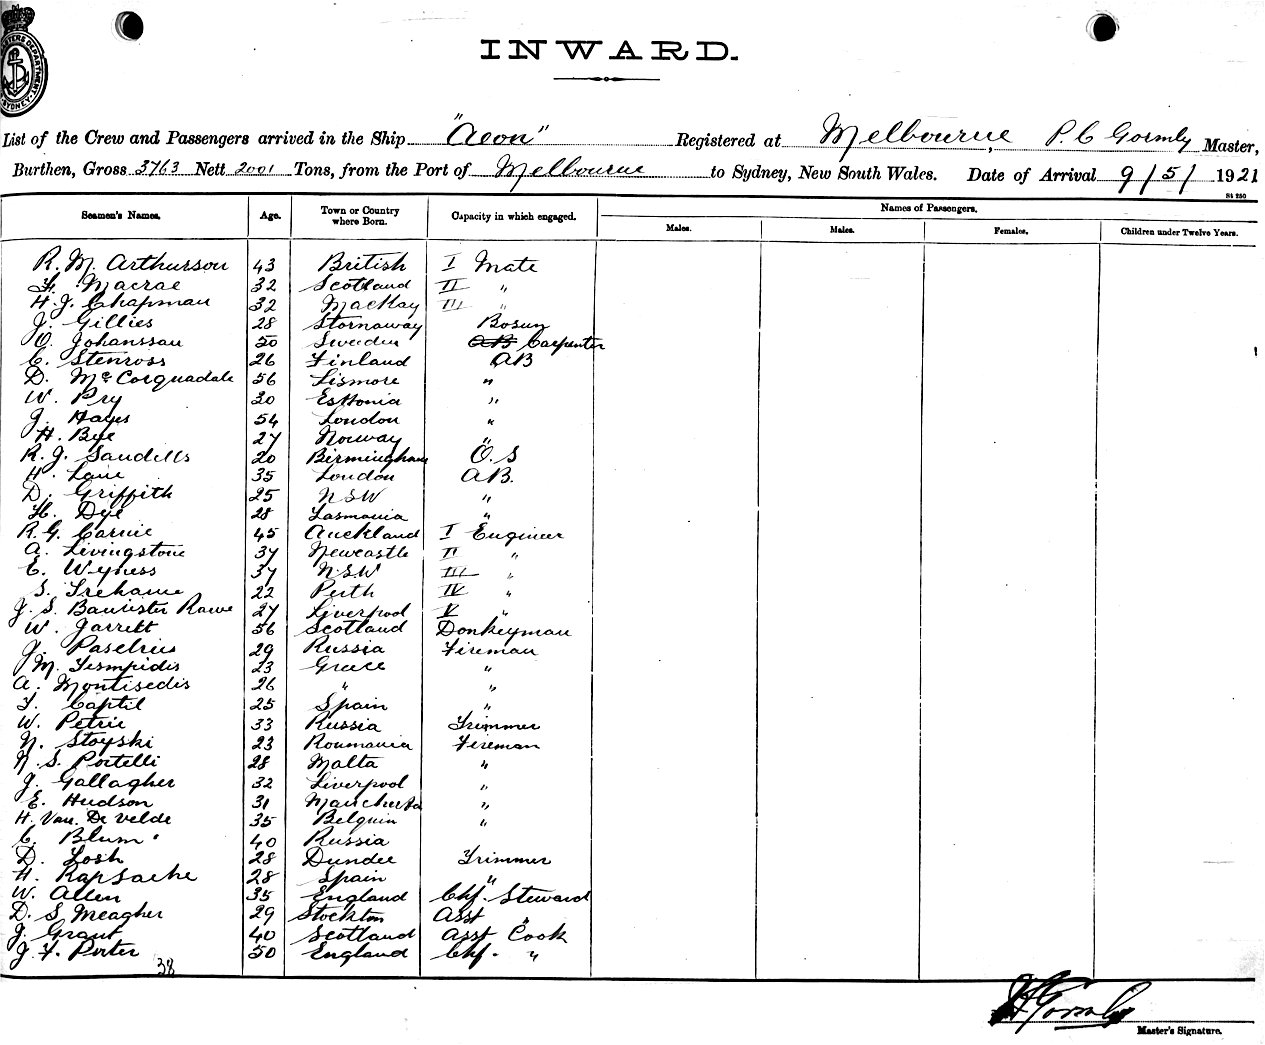 INWARD.
List of the Crew and Passengers arrived in the Ship "Aeon" Registered at Melbourne, P. C Gormly Master,
Burthen, Gross 3763 Nett 2001 Tons, from the Port of Melbourne to Sydney, New South Wales. Date of Arrival 9/5/1921
Seamen's Names. Age. Town or Country where Born. Capacity in which engaged. Names of Passengers.
Males. Males. Females. Children under Twelve Years.
R. M. Arthurson 43 British I Mate
Macrae 32 Scotland II "
H. J. Chapman 32 MacKay III "
J. Gillies 28 Stornaway Bosun
O. Johanssan 50 Sweden AB Carpenter
C. Stenross 26 Finland AB
D. McCorquadale 56 Lismore "
W. Pry 30 Esthonia "
J. Hayes 54 London "
H. Bye 27 Norway "
R. J. Sandells 20 Birmingham O.S
H. Lane 35 London AB.
D. Griffith 25 NSW "
H. Dye 28 Tasmania "
R. G. Carnie 45 Auckland I Engineer
A. Livingstone 37 Newcastle II "
E. Wyness 37 N.S.W III "
S. Trehame 22 Perth IV "
J. S. Bannister Rowe 27 Liverpool V "
W. Jarrett 56 Scotland Donkeyman
J. Paselnis 29 Russia Fireman
M. Tesmpidis 23 Greece "
A. Montisedis 26 " "
F. Captil 25 Spain "
W. Petrie 33 Russia Trimmer
N. Stoyski 23 Roumania Fireman
N. S. Portelli 28 Malta "
J. Gallagher 32 Liverpool "
E. Hudson 31 Manchester "
H. Van. De Velde 35 Belguin "
C. Blum 40 Russia
D. Tosh 28 Dundee Trimmer
H. Rapsache 28 Spain "
W. Allen 35 England Chf. Steward
D. S. Meagher 29 Stockton Asst "
J. Grant 40 Scotland Asst Cook
J. F. Porter 50 England Chf. "
38
Master's Signature.